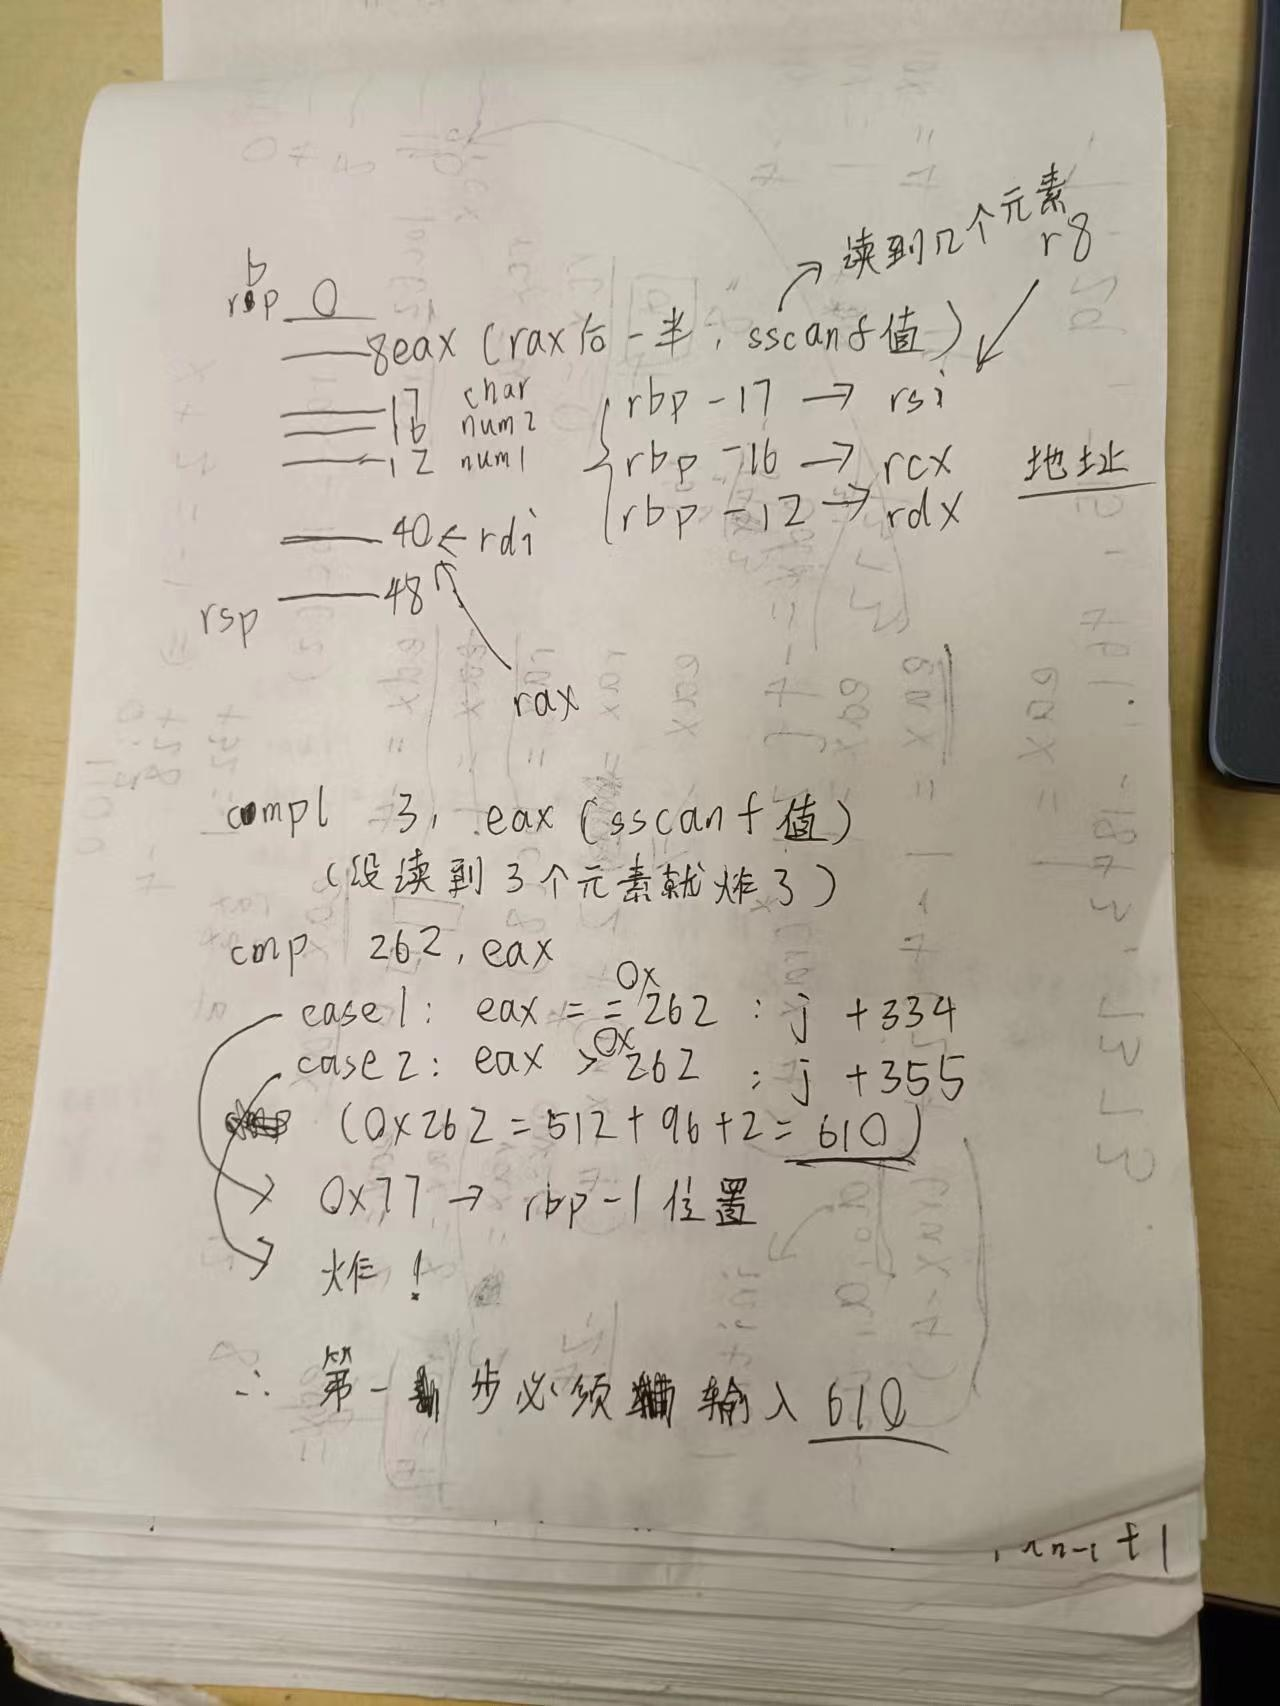 读到几个元素
b
r8
rsp 0
8eax (rax后一半, sscanf值)
17 char
rbp -17 → rsi
16 num2
rbp -16 → rcx
12 num1
地址
rbp -12 → rdx
40 ← rdi
48
rsp
rax
compl 3, eax (sscanf值)
(没读到3个元素就炸了)
cmp 262, eax
case1: eax == 0x262 : j +334
case2: eax > 0x262 : j +355
(0x262 = 512 + 96 + 2 = 610)
0x77 → rbp -1 位置
炸!
∴ 第一步必须输入 610